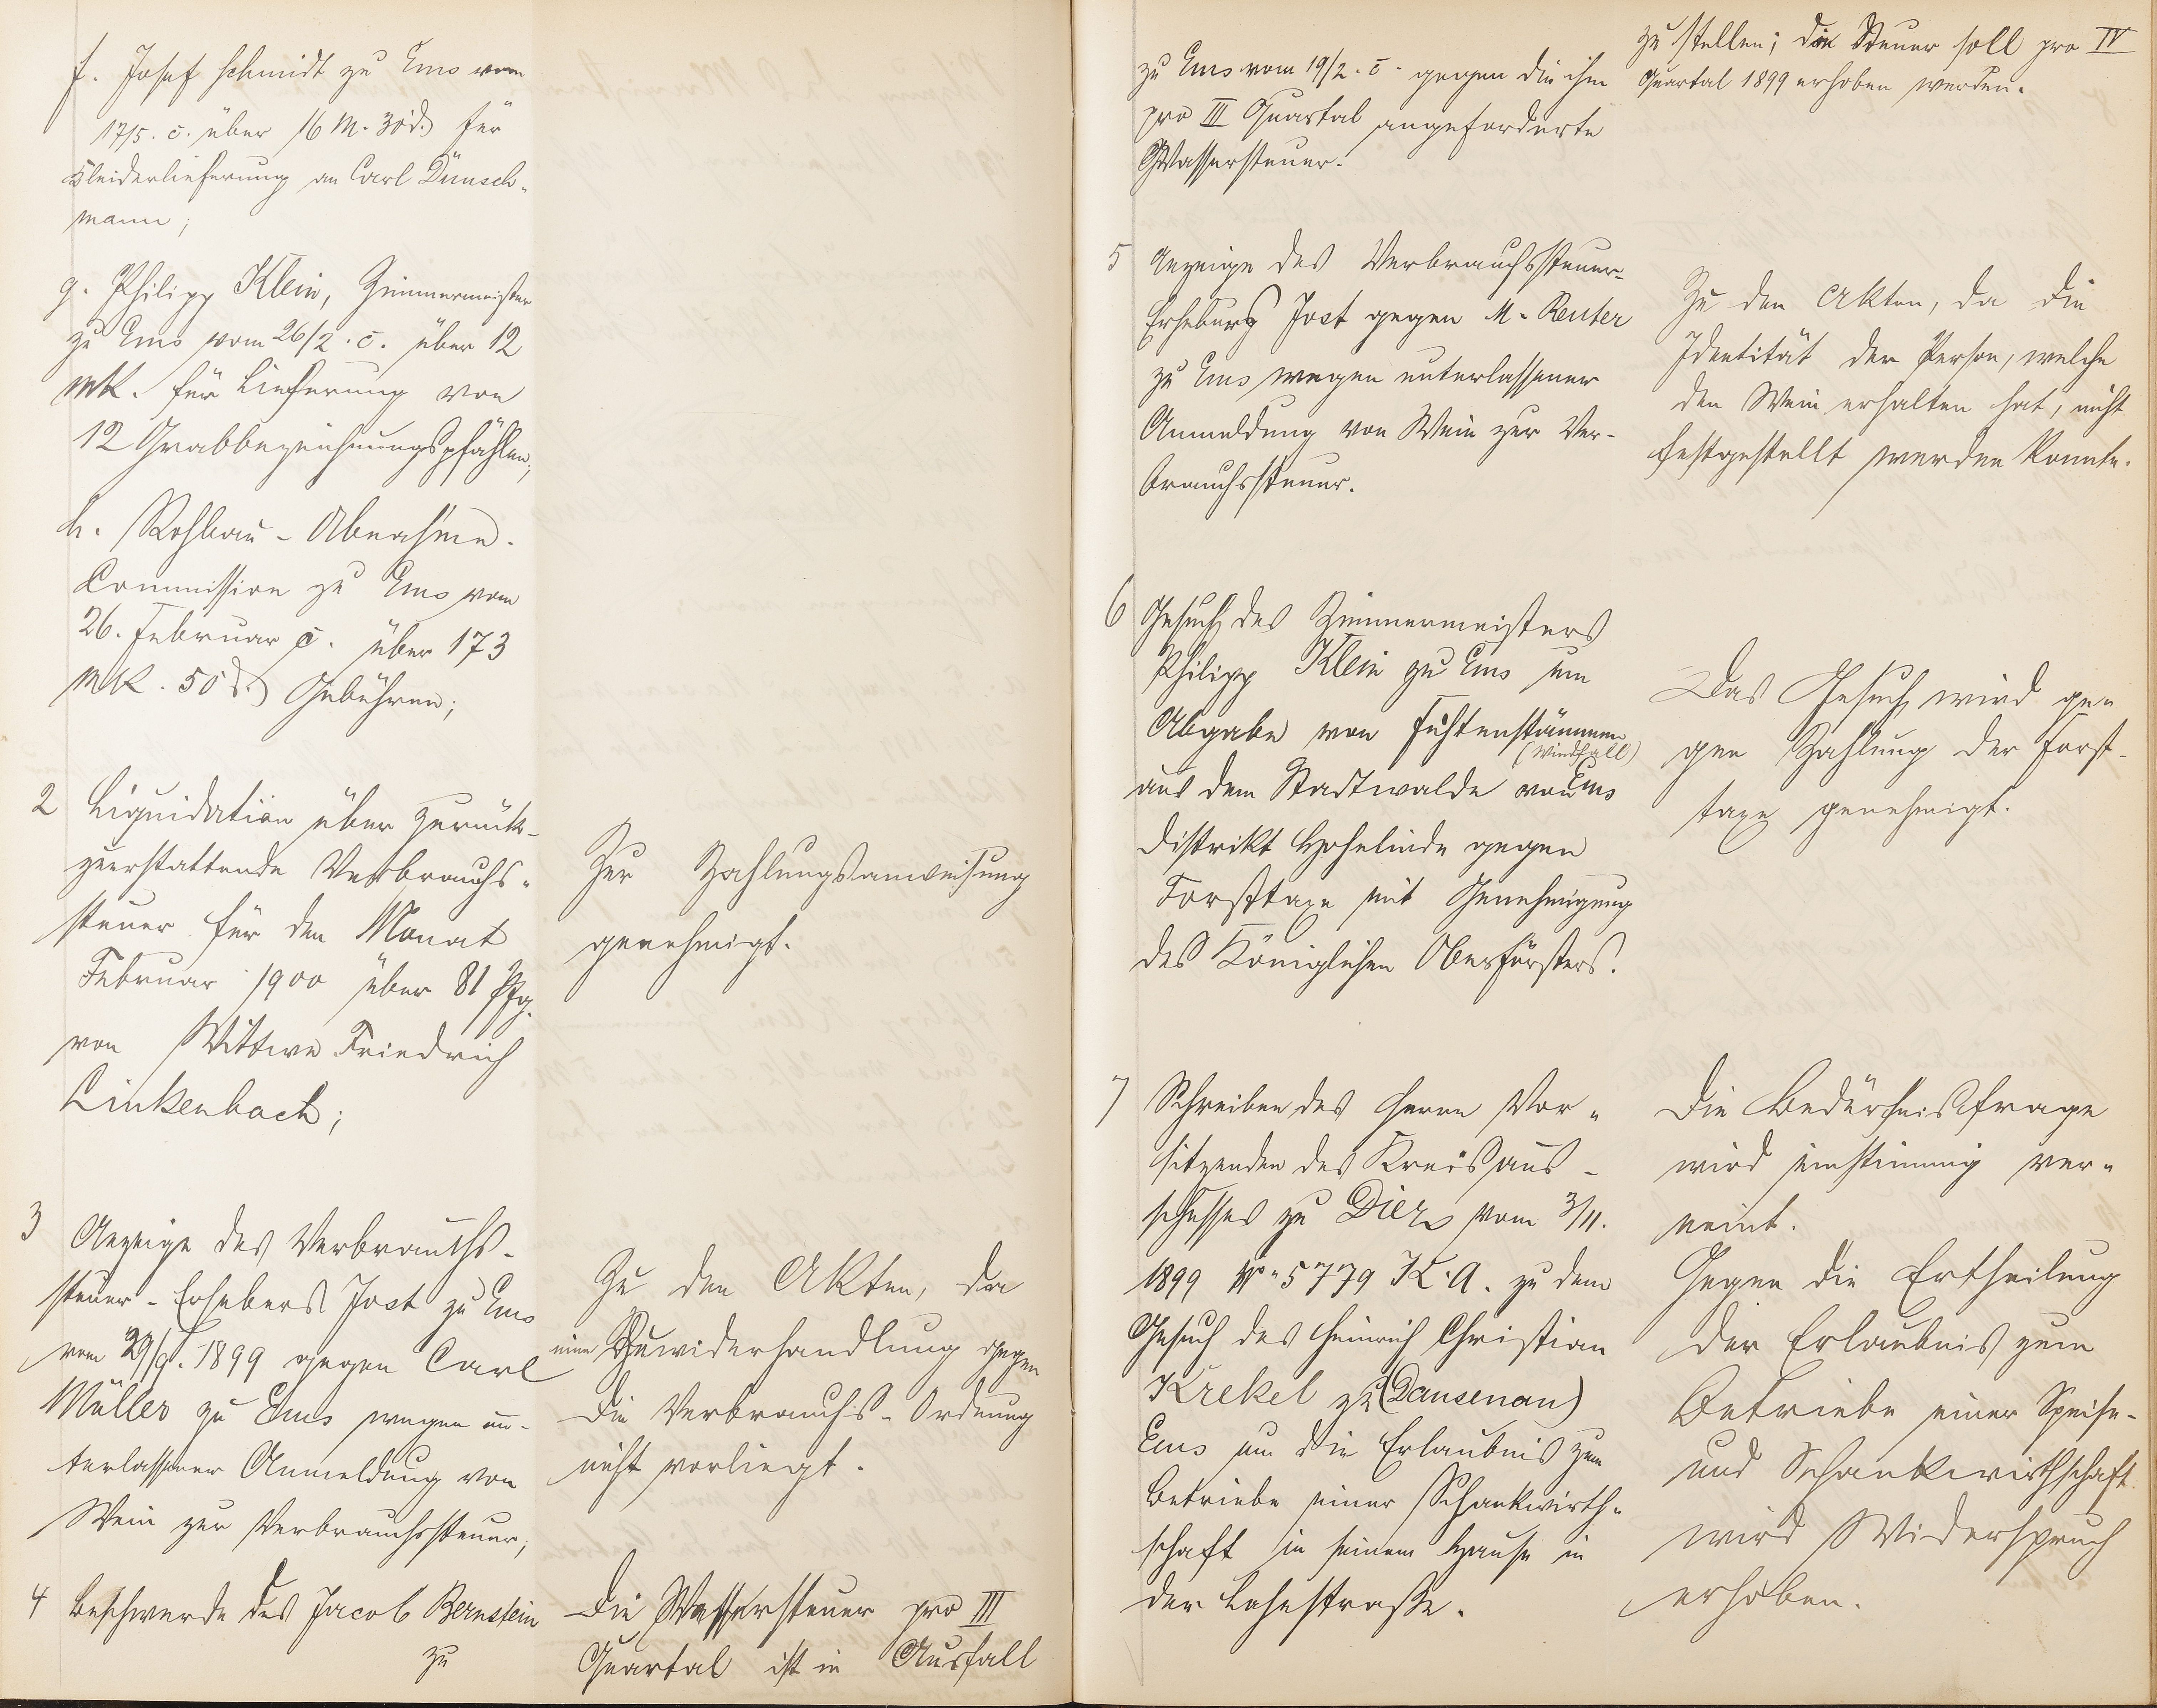 f. Josef Schmidt zu Ems vom
17/5. c. über 16 M. 30 d. für
Kleiderlieferung an Carl Dünsch-
mann;
g. Philipp Klein, Zimmermeister
zu Ems vom 26/2. c. über 12
Mk. für Lieferung von
12 Grabbezeichnungspfählen;
h. Rohbau-Abnahme-
Commission zu Ems vom
26. Februar c. über 173
Mk. 50 d. Gebühren;
2 Liquidation über zurück-
zuerstattende Verbrauchs-
steuer für den Monat
Februar 1900 über 81 Pfg.
von Wittwe Friedrich
Linkenbach;
Zur Zahlungsanweisung
genehmigt.
3 Anzeige des Verbrauchs-
steuer-Erhebers Jost zu Ems
vom 29/9. 1899 gegen Carl
Müller zu Ems wegen un-
terlassener Anmeldung von
Wein zur Verbrauchssteuer;
Zu den Akten, da
eine Zuwiderhandlung gegen
die Verbrauchs-Ordnung
nicht vorliegt.
4 Beschwerde des Jacob Bernstein
zu
Die Wassersteuer pro III
Quartal ist in Ausfall
zu Ems vom 19/2. c. gegen die ihm
pro III Quartal angeforderte
Wassersteuer.
zu stellen; die Steuer soll pro IV
Quartal 1899 erhoben werden.
5 Anzeige des Verbrauchssteuer-
Erhebers Jost gegen M. Reuter
zu Ems wegen unterlassener
Anmeldung von Wein zur Ver-
brauchssteuer.
Zu den Akten, da die
Identität der Person, welche
den Wein erhalten hat, nicht
festgestellt werden konnte.
6 Gesuch des Zimmermeisters
Philipp Klein zu Ems um
Abgabe von Fichtenstämmen
(Windfall)
aus dem Stadtwalde von Ems
Distrikt Hohelinde gegen
Forsttaxe mit Genehmigung
des Königlichen Oberförsters.
Das Gesuch wird ge-
gen Zahlung der Forst-
taxe genehmigt.
7 Schreiben des Herrn Vor-
sitzenden des Kreisaus-
schusses zu Diez vom 3/11.
1899 No 5779 K.A. zu dem
Gesuch des Heinrich Christian
Krekel zu (Dausenau)
Ems um die Erlaubnis zum
Betriebe einer Schankwirth-
schaft in seinem Hause in
der Lahnstraße.
Die Bedürfnisfrage
wird einstimmig ver-
neint.
Gegen die Ertheilung
der Erlaubnis zum
Betriebe einer Speise-
und Schankwirthschaft
wird Widerspruch
erhoben.